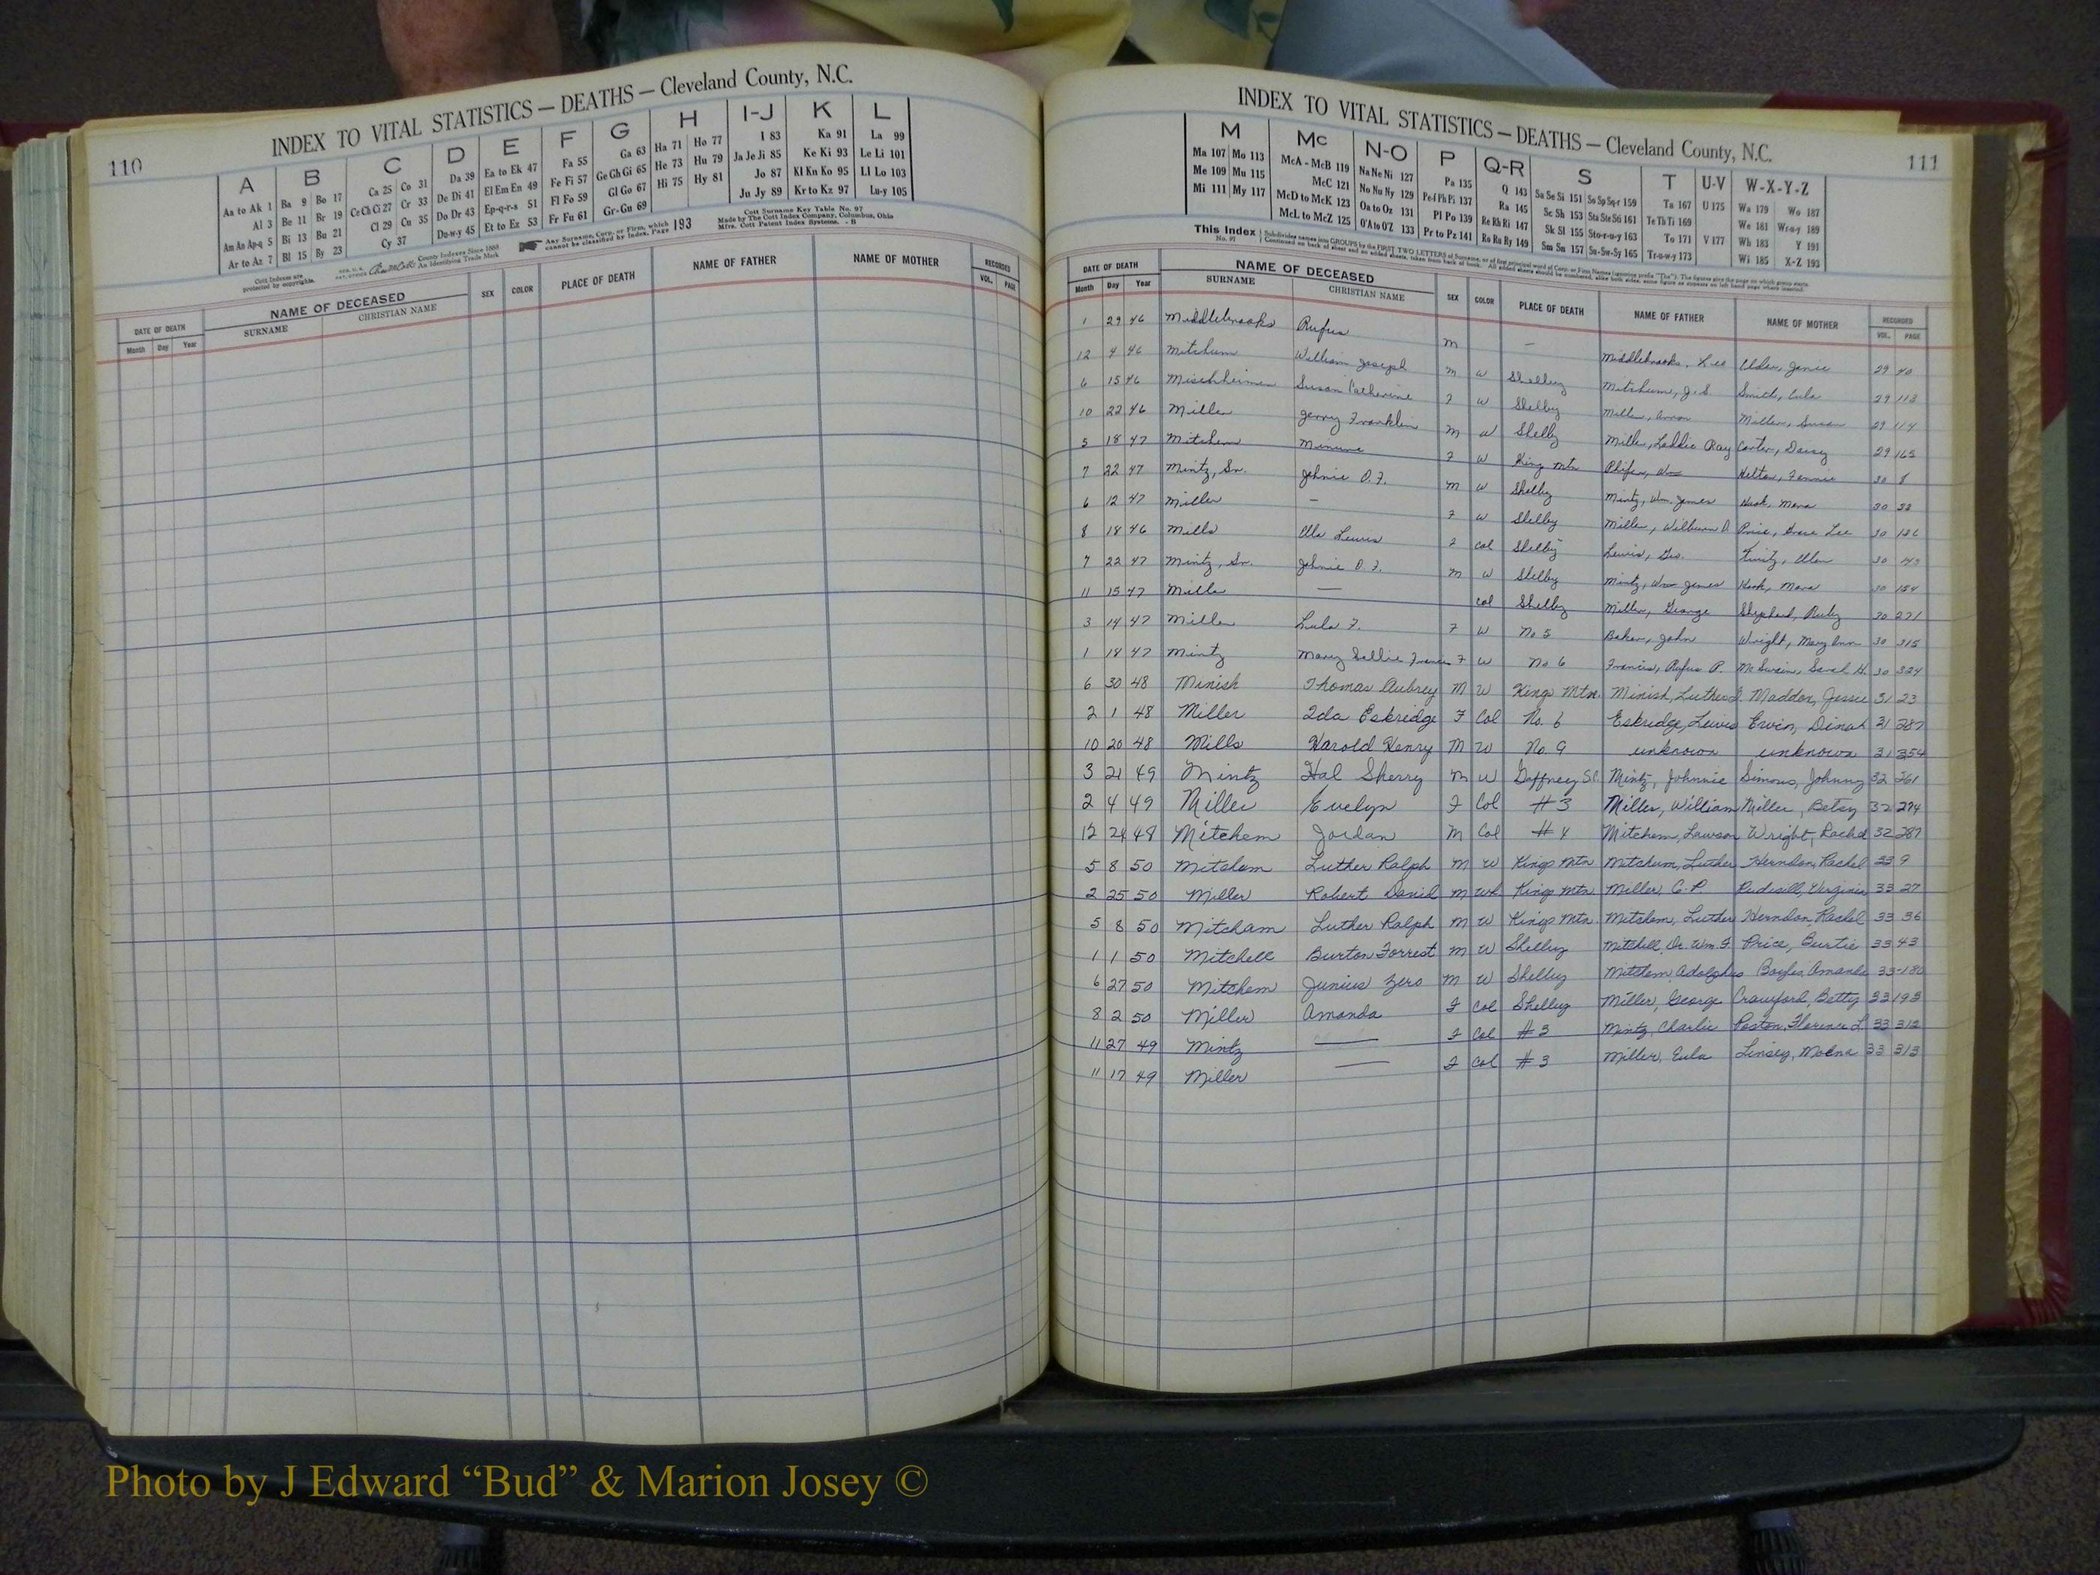 110
INDEX TO VITAL STATISTICS — DEATHS — Cleveland County, N.C.
A B C D E F G H I-J K L
Aa to Ak 1 Ba 9 Bo 17 Ca 25 Co 31 Da 39 Ea to Ek 47 Fa 55 Ga 63 Ha 71 Ho 77 I 83 Ka 91 La 99
Al 3 Be 11 Br 19 Ce Ch Ci 27 Cr 33 De Di 41 El Em En 49 Fe Fi 57 Ge Gh Gi 65 He 73 Hu 79 Ja Je Ji 85 Ke Ki 93 Le Li 101
Am An Ap-q 5 Bi 13 Bu 21 Cl 29 Cu 35 Do Dr 43 Ep-q-r-s 51 Fl Fo 59 Gl Go 67 Hi 75 Hy 81 Jo 87 Kl Kn Ko 95 Ll Lo 103
Ar to Az 7 Bl 15 By 23 Cy 37 Du-w-y 45 Et to Ez 53 Fr Fu 61 Gr-Gu 69 Ju Jy 89 Kr to Kz 97 Lu-y 105
Cott Indexes are protected by copyrights.
County Indexes Since 1888
An Identifying Trade Mark
Any Surname, Corp. or Firm, which cannot be classified by Index, Page 193
Cott Surname Key Table No. 97
Made by The Cott Index Company, Columbus, Ohio
Mfrs. Cott Patent Index Systems. - B
DATE OF DEATH NAME OF DECEASED SEX COLOR PLACE OF DEATH NAME OF FATHER NAME OF MOTHER RECORDED
Month Day Year SURNAME CHRISTIAN NAME VOL. PAGE
INDEX TO VITAL STATISTICS — DEATHS — Cleveland County, N.C.
111
M Mc N-O P Q-R S T U-V W-X-Y-Z
Ma 107 Mo 113 McA - McB 119 Na Ne Ni 127 Pa 135 Q 143 Sa Se Si 151 So Sp Sq-r 159 Ta 167 U 175 Wa 179 Wo 187
Me 109 Mu 115 McC 121 No Nu Ny 129 Pe-f Ph Pi 137 Ra 145 Sc Sh 153 Sta Ste Sti 161 Te Th Ti 169 We 181 Wr-u-y 189
Mi 111 My 117 McD to McK 123 Oa to Oz 131 Pl Po 139 Re Rh Ri 147 Sk Sl 155 Sto-r-u-y 163 To 171 V 177 Wh 183 Y 191
McL to McZ 125 O'A to O'Z 133 Pr to Pz 141 Ro Ru Ry 149 Sm Sn 157 Su-Sw-Sy 165 Tr-u-w-y 173 Wi 185 X-Z 193
This Index No. 97
DATE OF DEATH NAME OF DECEASED SEX COLOR PLACE OF DEATH NAME OF FATHER NAME OF MOTHER RECORDED
Month Day Year SURNAME CHRISTIAN NAME VOL. PAGE
1 29 46 Middlebrooks Rufus M — Middlebrooks, Lee Elder, Janie 29 40
12 4 46 Mitchum William Joseph M W Shelby Mitchum, J. S. Smith, Eula 29 113
6 15 46 Susan Catherine F W Shelby Miller, Miller, Susan 29 114
10 22 46 Miller Jerry Franklin M W Shelby Miller, Laddie Ray Carter, Daisy 29 165
5 18 47 Mitchem Minnie F W King Mtn Phifer, Wm Helton, Fannie 30 8
7 22 47 Mintz, Sr. Johnie O. F. M W Shelby Mintz, Wm. James Hook, Mara 30 32
6 12 47 Miller — F W Shelby Miller, Wilburn D. Price, Grace Lee 30 136
8 18 46 Mills Ula Lewis F Col Shelby Lewis, Geo. 30 143
7 22 47 Mintz, Sr. Johnie O. F. M W Shelby Mintz, Wm James Hook, Mara 30 154
11 15 47 Mille — Col Shelby Miller, George Shepherd, Ruby 30 271
3 14 47 Miller Lula F. F W No 5 Baker, John Wright, Mary Ann 30 315
1 18 47 Mintz Mary Sallie Francis F W No 6 Francis, Rufus P. McSwain, Sarah H. 30 324
6 30 48 Minish Thomas Aubrey M W Kings Mtn. Minish, Luther Maddox, Jessie 31 23
2 1 48 Miller Ida Eskridge F Col No. 6 Eskridge, Lewis Ervin, Dinah 31 287
10 20 48 Mills Harold Henry M W No 9 unknown unknown 31 354
3 21 49 Mintz Hal Sherry M W Gaffney S.C. Mintz, Johnnie Simons, Johnny 32 261
2 4 49 Miller Evelyn F Col #3 Miller, William Miller, Betsy 32 274
12 24 48 Mitchem Jordan M Col #4 Mitchem, Lawson Wright, Rachel 32 287
5 8 50 Mitcham Luther Ralph M W Kings Mtn Mitcham, Luther Herndon, Rachel 33 9
2 25 50 Miller Robert David M Wh Kings Mtn Miller C. P. Rudisill, Virginia 33 27
5 8 50 Mitcham Luther Ralph M W Kings Mtn. Mitcham, Luther Herndon Rachel 33 36
1 1 50 Mitchell Burton Forrest M W Shelby Mitchell Dr. Wm. F. Price, Burtie 33 43
6 27 50 Mitchem Junius Zero M W Shelby Mitchem, Adolphus Boyles, Amanda 33 180
8 2 50 Miller Amanda F Col Shelby Miller, George Crawford, Betty 33 193
11 27 49 Mintz — F Col #3 Mintz, Charlie Poston, Florence L. 33 312
11 17 49 Miller — F Col #3 Miller, Eula Linsey, 33 313
Photo by J Edward “Bud” & Marion Josey ©